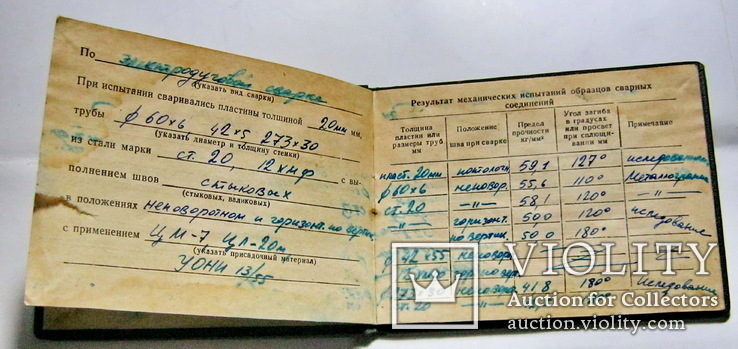 По электродуговой сварке
(указать вид сварки)
При испытании сваривались пластины толщиной 20мм мм,
трубы ф 60х6 42х5 273х30
(указать диаметр и толщину стенки)
из стали марки ст. 20, 12хмф с вы-
полнением швов стыковых
(стыковых, валиковых)
в положениях неповоротном и горизонт. по вертик
с применением ЦМ-7 ЦЛ-20м
(указать присадочный материал)
УОНИ 13/55
Результат механических испытаний образцов сварных
соединений
Толщина пластин или размеры труб мм Положение шва при сварке Предел прочности кг/мм² Угол загиба в градусах или просвет при сплющивании мм Примечание
пласт. 20мм потолочн 59,1 127°
ф60х6 неповор. 55,6 110° Металлограф
ст. 20 —"— 58,1 120° —"—
—"— горизонт. 500 120° исследование
по вертик. 500 180°
ф 42х5 неповор.
273х30 неповор 41,8 180° Исследование
ст. 20 —"—
VIOLITY
Auction for Collectors
auction.violity.com